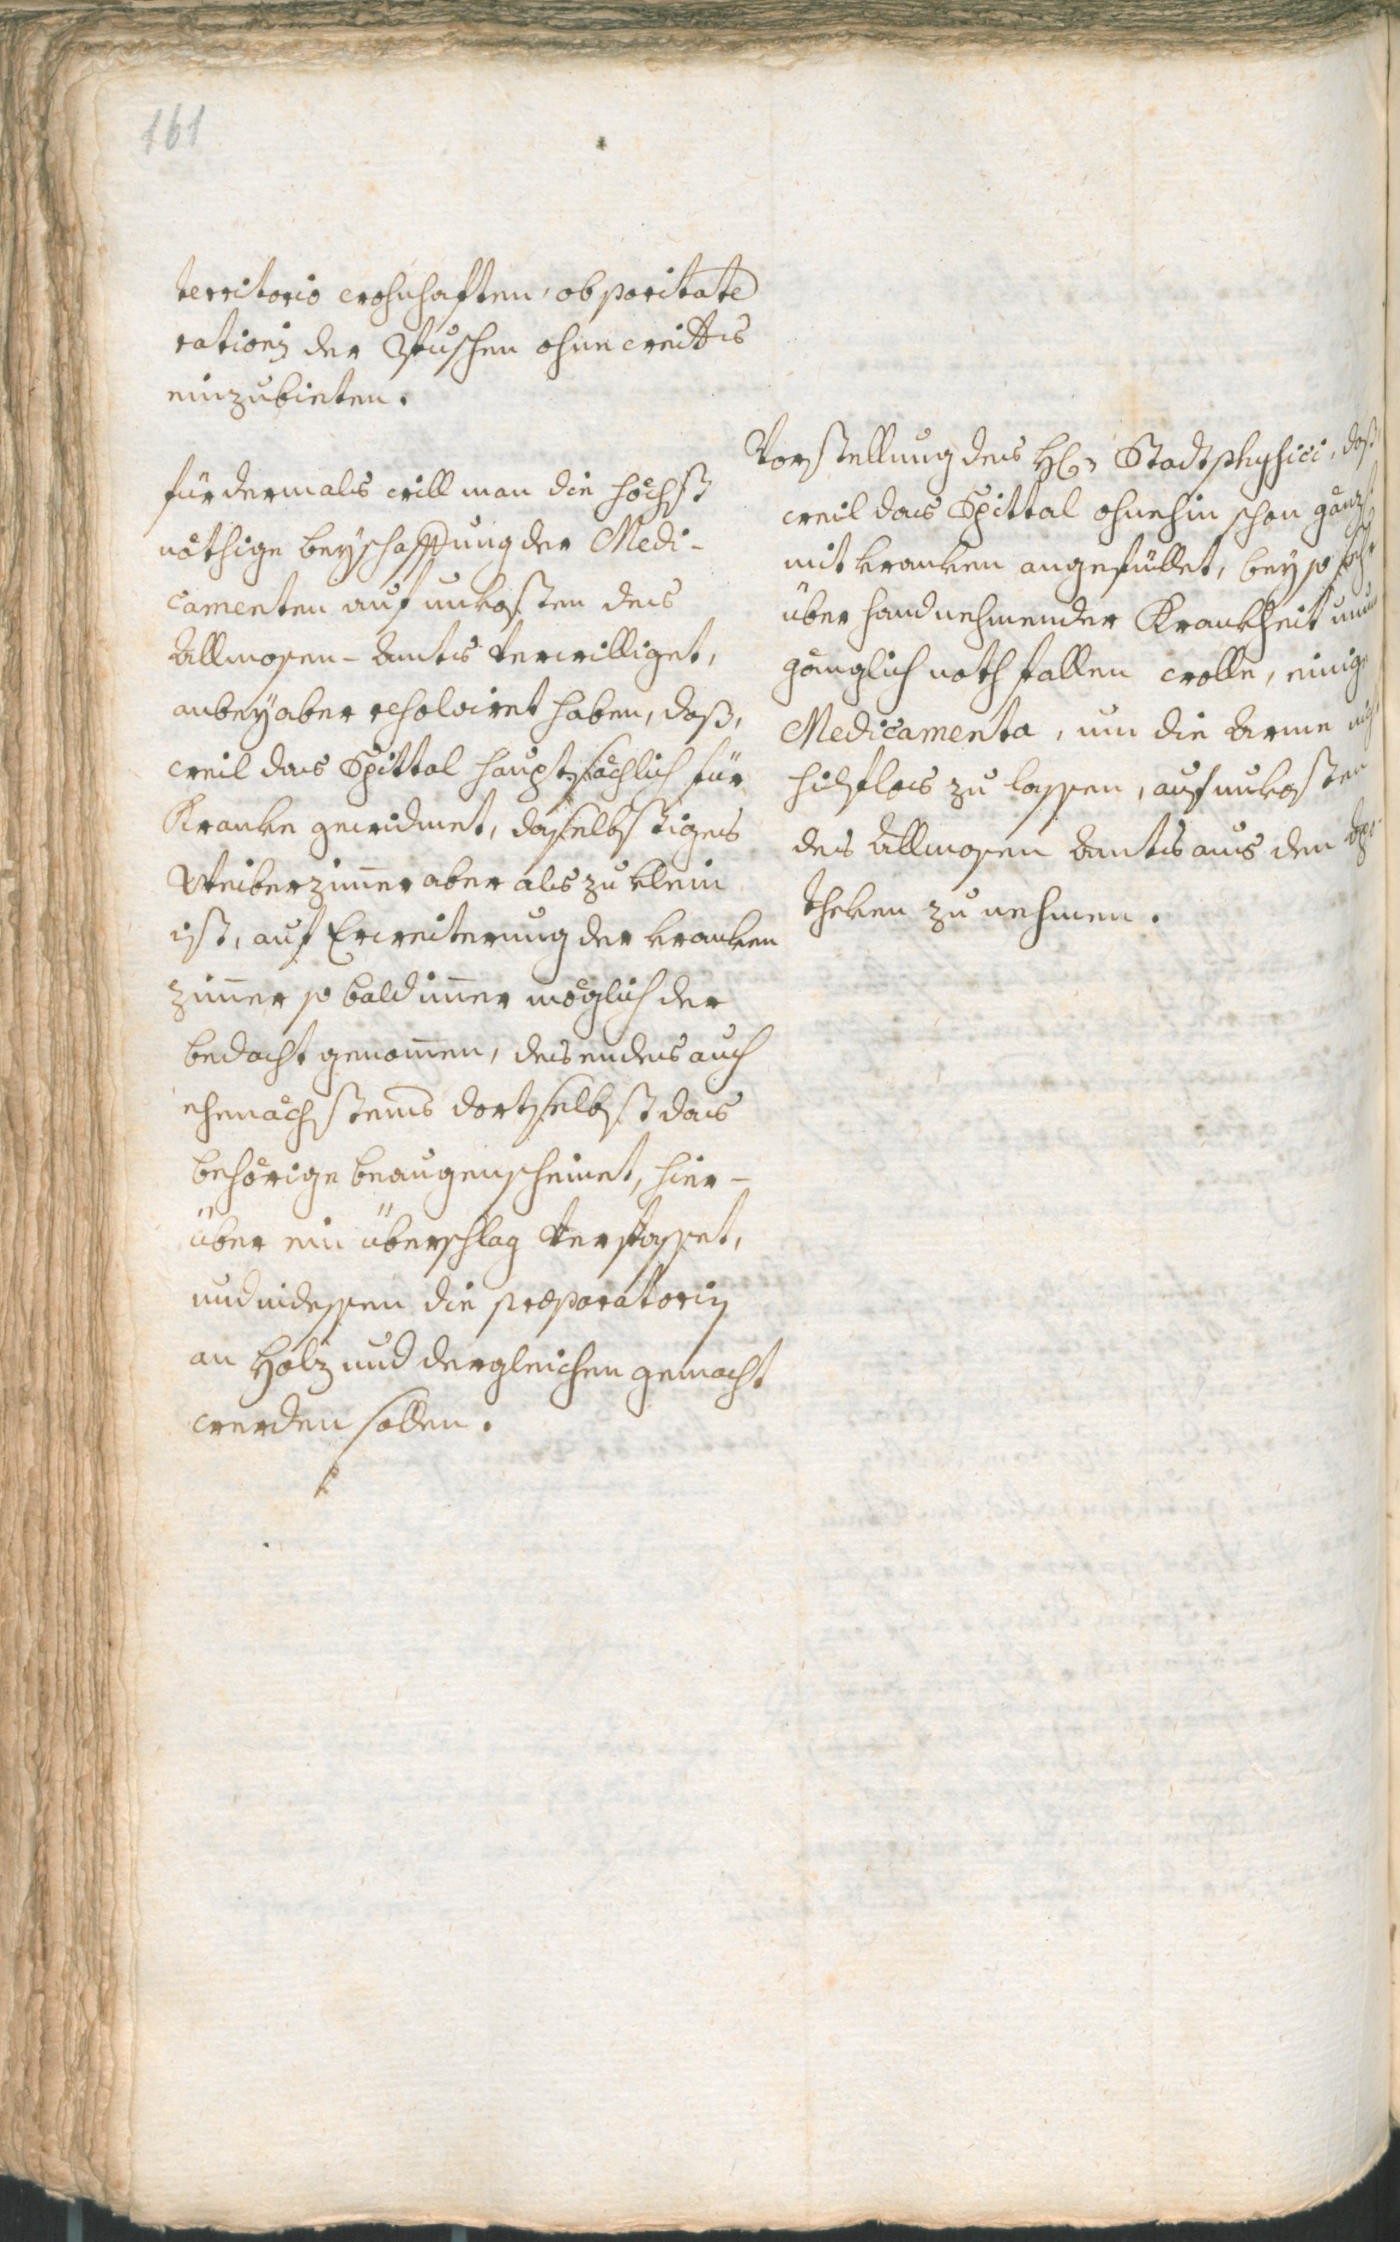 161
territorio wohnhaften, ob paritatē
rationis der Pfuschen ohneweitters
einzubieten.
für dermals will man die höchst
nöthige beyschaffung der Medi-
camenten auf unkosten des
Allmosen-Amts verwilliget,
anbey aber resolviret haben, daß,
weil das Spittal hauptsächlich für
Kranke gewidmet, daselbstiges
Weiberzim̄er aber als zu klein
ist, auf Erweiterung der kranken
zim̄er so bald im̄er möglich der
bedacht genom̄en, des endes auch
ehenächstens dortselbst das
behörige beaugenscheinet, hier-
über ein überschlag verfasset,
und indessen die præparatorien
an Holz und dergleichen gemacht
werden sollen.
Vorstellung des H: Stadtphysici, daß
weil das Spittal ohnehin schon gänzl
mit kranken angefüllet, bey so sehr
über handnehmender Krankheit unum
gänglich noth fallen wolle, einige
Medicamenta, um die Arme nich
hilflos zu lassen, auf unkosten
des Allmosen Amts aus den Apo-
theken zu nehmen.